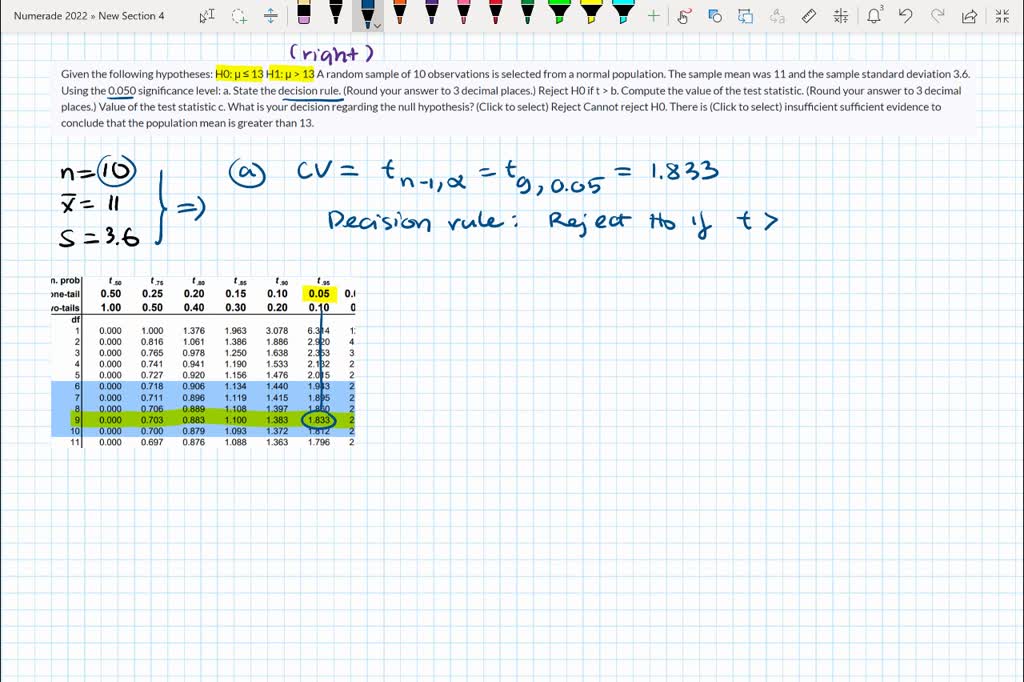 Numerade 2022 » New Section 4
3
(right)
Given the following hypotheses: H0: μ ≤ 13 H1: μ > 13 A random sample of 10 observations is selected from a normal population. The sample mean was 11 and the sample standard deviation 3.6.
Using the 0.050 significance level: a. State the decision rule. (Round your answer to 3 decimal places.) Reject H0 if t > b. Compute the value of the test statistic. (Round your answer to 3 decimal
places.) Value of the test statistic c. What is your decision regarding the null hypothesis? (Click to select) Reject Cannot reject H0. There is (Click to select) insufficient sufficient evidence to
conclude that the population mean is greater than 13.
n = 10
x̄ = 11
S = 3.6
=>
(a) CV = t n-1, α = t 9, 0.05 = 1.833
Decision rule: Reject Ho if t >
n. prob t.50 t.75 t.80 t.85 t.90 t.95
one-tail 0.50 0.25 0.20 0.15 0.10 0.05 0.0
wo-tails 1.00 0.50 0.40 0.30 0.20 0.10 0
df
1 0.000 1.000 1.376 1.963 3.078 6.314 1
2 0.000 0.816 1.061 1.386 1.886 2.920 4
3 0.000 0.765 0.978 1.250 1.638 2.353 3
4 0.000 0.741 0.941 1.190 1.533 2.132 2
5 0.000 0.727 0.920 1.156 1.476 2.015 2
6 0.000 0.718 0.906 1.134 1.440 1.943 2
7 0.000 0.711 0.896 1.119 1.415 1.895 2
8 0.000 0.706 0.889 1.108 1.397 1.860 2
9 0.000 0.703 0.883 1.100 1.383 1.833 2
10 0.000 0.700 0.879 1.093 1.372 1.812 2
11 0.000 0.697 0.876 1.088 1.363 1.796 2